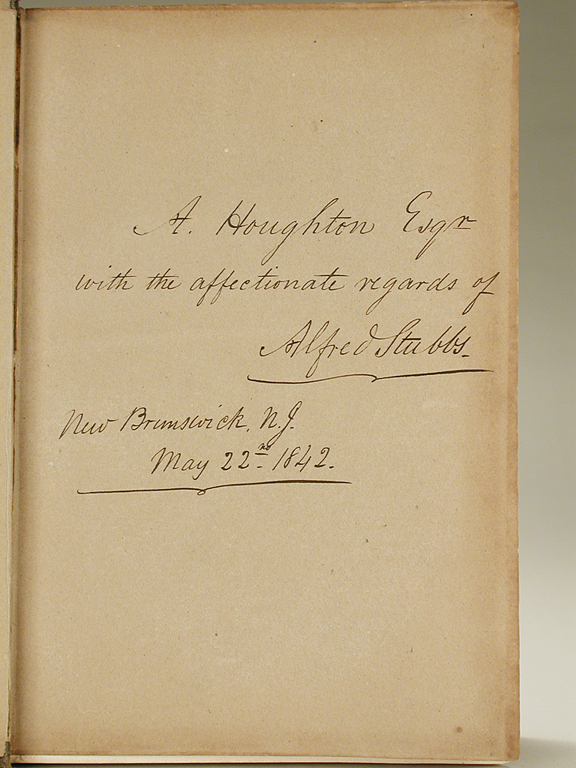 A. Houghton Esqr
with the affectionate regards of
Alfred Stubbs.
New Brunswick, N.J.
May 22nd 1842.